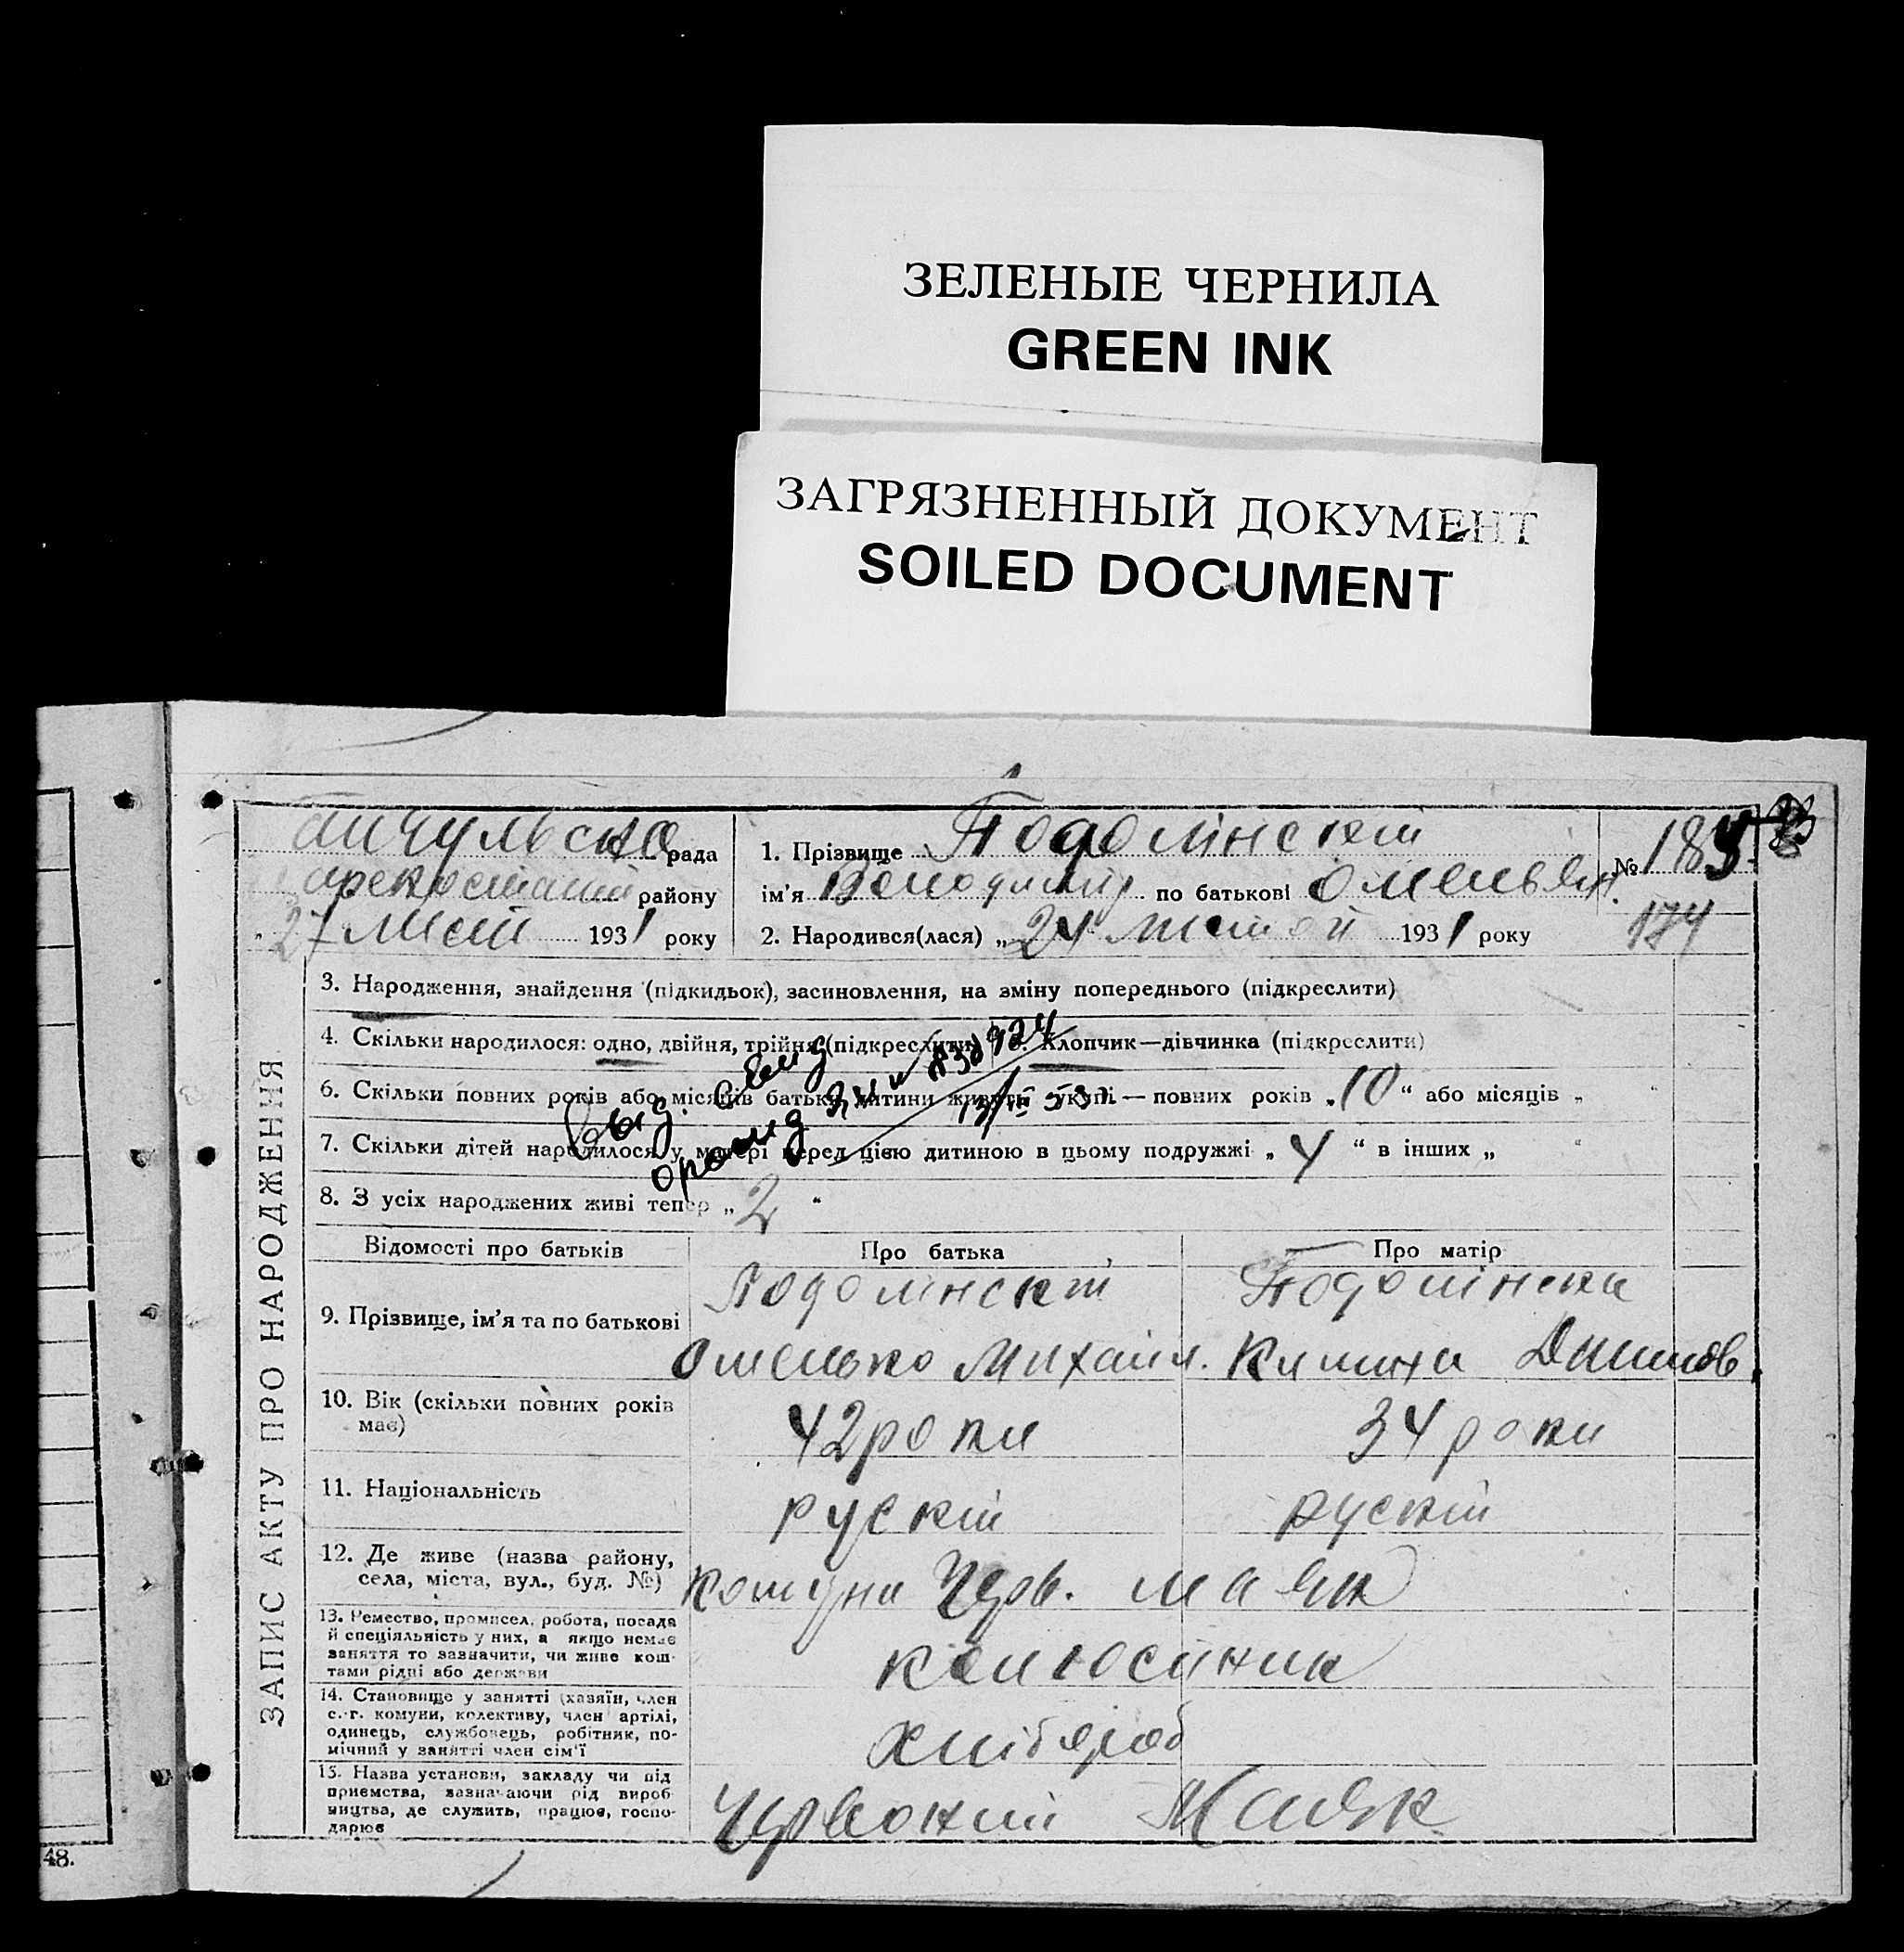 ЗЕЛЕНЫЕ ЧЕРНИЛА
GREEN INK
ЗАГРЯЗНЕННЫЙ ДОКУМЕНТ
SOILED DOCUMENT
ЗАПИС АКТУ ПРО НАРОДЖЕННЯ
рада
району
27 лют 1931 року
1. Прізвище Подолінскій
ім'я Володимир по батькові Омельян.
2. Народився(лася) „ 1931 року
№ 185
174
3. Народження, знайдення (підкидьок), засиновлення, на зміну попереднього (підкреслити)
4. Скільки народилося: одно, двійня, трійня (підкреслити) 5. Хлопчик—дівчинка (підкреслити)
6. Скільки повних років або місяців батьки дитини живуть укупі — повних років „10“ або місяців „ “
7. Скільки дітей народилося у матері перед цією дитиною в цьому подружжі „4“ в інших „ “
8. З усіх народжених живі тепер „2“
Відомості про батьків
Про батька
Про матір
9. Прізвище, ім'я та по батькові
Подолінскій
Омелько Михайл.
Подолінска
Килина Данилов.
10. Вік (скільки повних років має)
42 роки
34 роки
11. Національність
рускій
рускій
12. Де живе (назва району,
села, міста, вул., буд. №)
Комуна Черв. маяк
13. Ремество, промисел, робота, посада
й спеціяльність у них, а якщо немає
заняття то зазначити, чи живе кош-
тами рідні або держави
14. Становище у занятті (хазяїн, член
с.-г. комуни, колективу, член артілі,
одинець, службовець, робітник, по-
мічний у занятті член сім'ї
хлібороб
15. Назва установи, закладу чи під
приемства, зазначаючи рід вироб
ництва, де служить, працює, госпо-
дарює
Червоний Маяк
48.